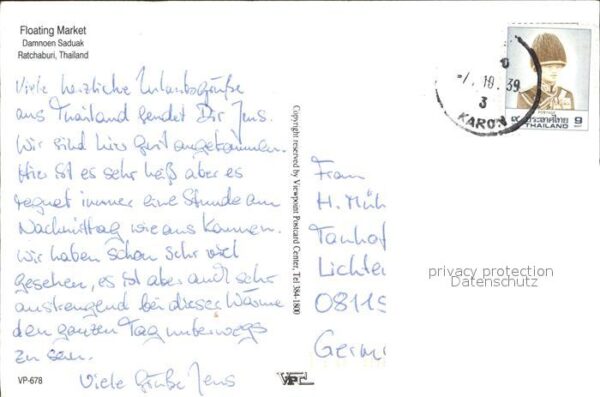 Floating Market
Damnoen Saduak
Ratchaburi, Thailand
Viele herzliche Urlaubsgrüße
aus Thailand sendet Dir Jens.
Wir sind hier gut angekommen.
Hier ist es sehr heiß aber es
regnet immer eine Stunde am
Nachmittag wie aus Kannen.
Wir haben schon sehr viel
gesehen, es ist aber auch sehr
anstrengend bei dieser Wärme
den ganzen Tag unterwegs
zu sein.
Viele Grüße Jens
VP-678
Copyright reserved by Viewpoint Postcard Center, Tel 384-1800
VPC
10.39
3
KARON
๙ ประเทศไทย 9
THAILAND
Frau
H. Müh
Tanhof
Lichte
0811
Germ
privacy protection
Datenschutz